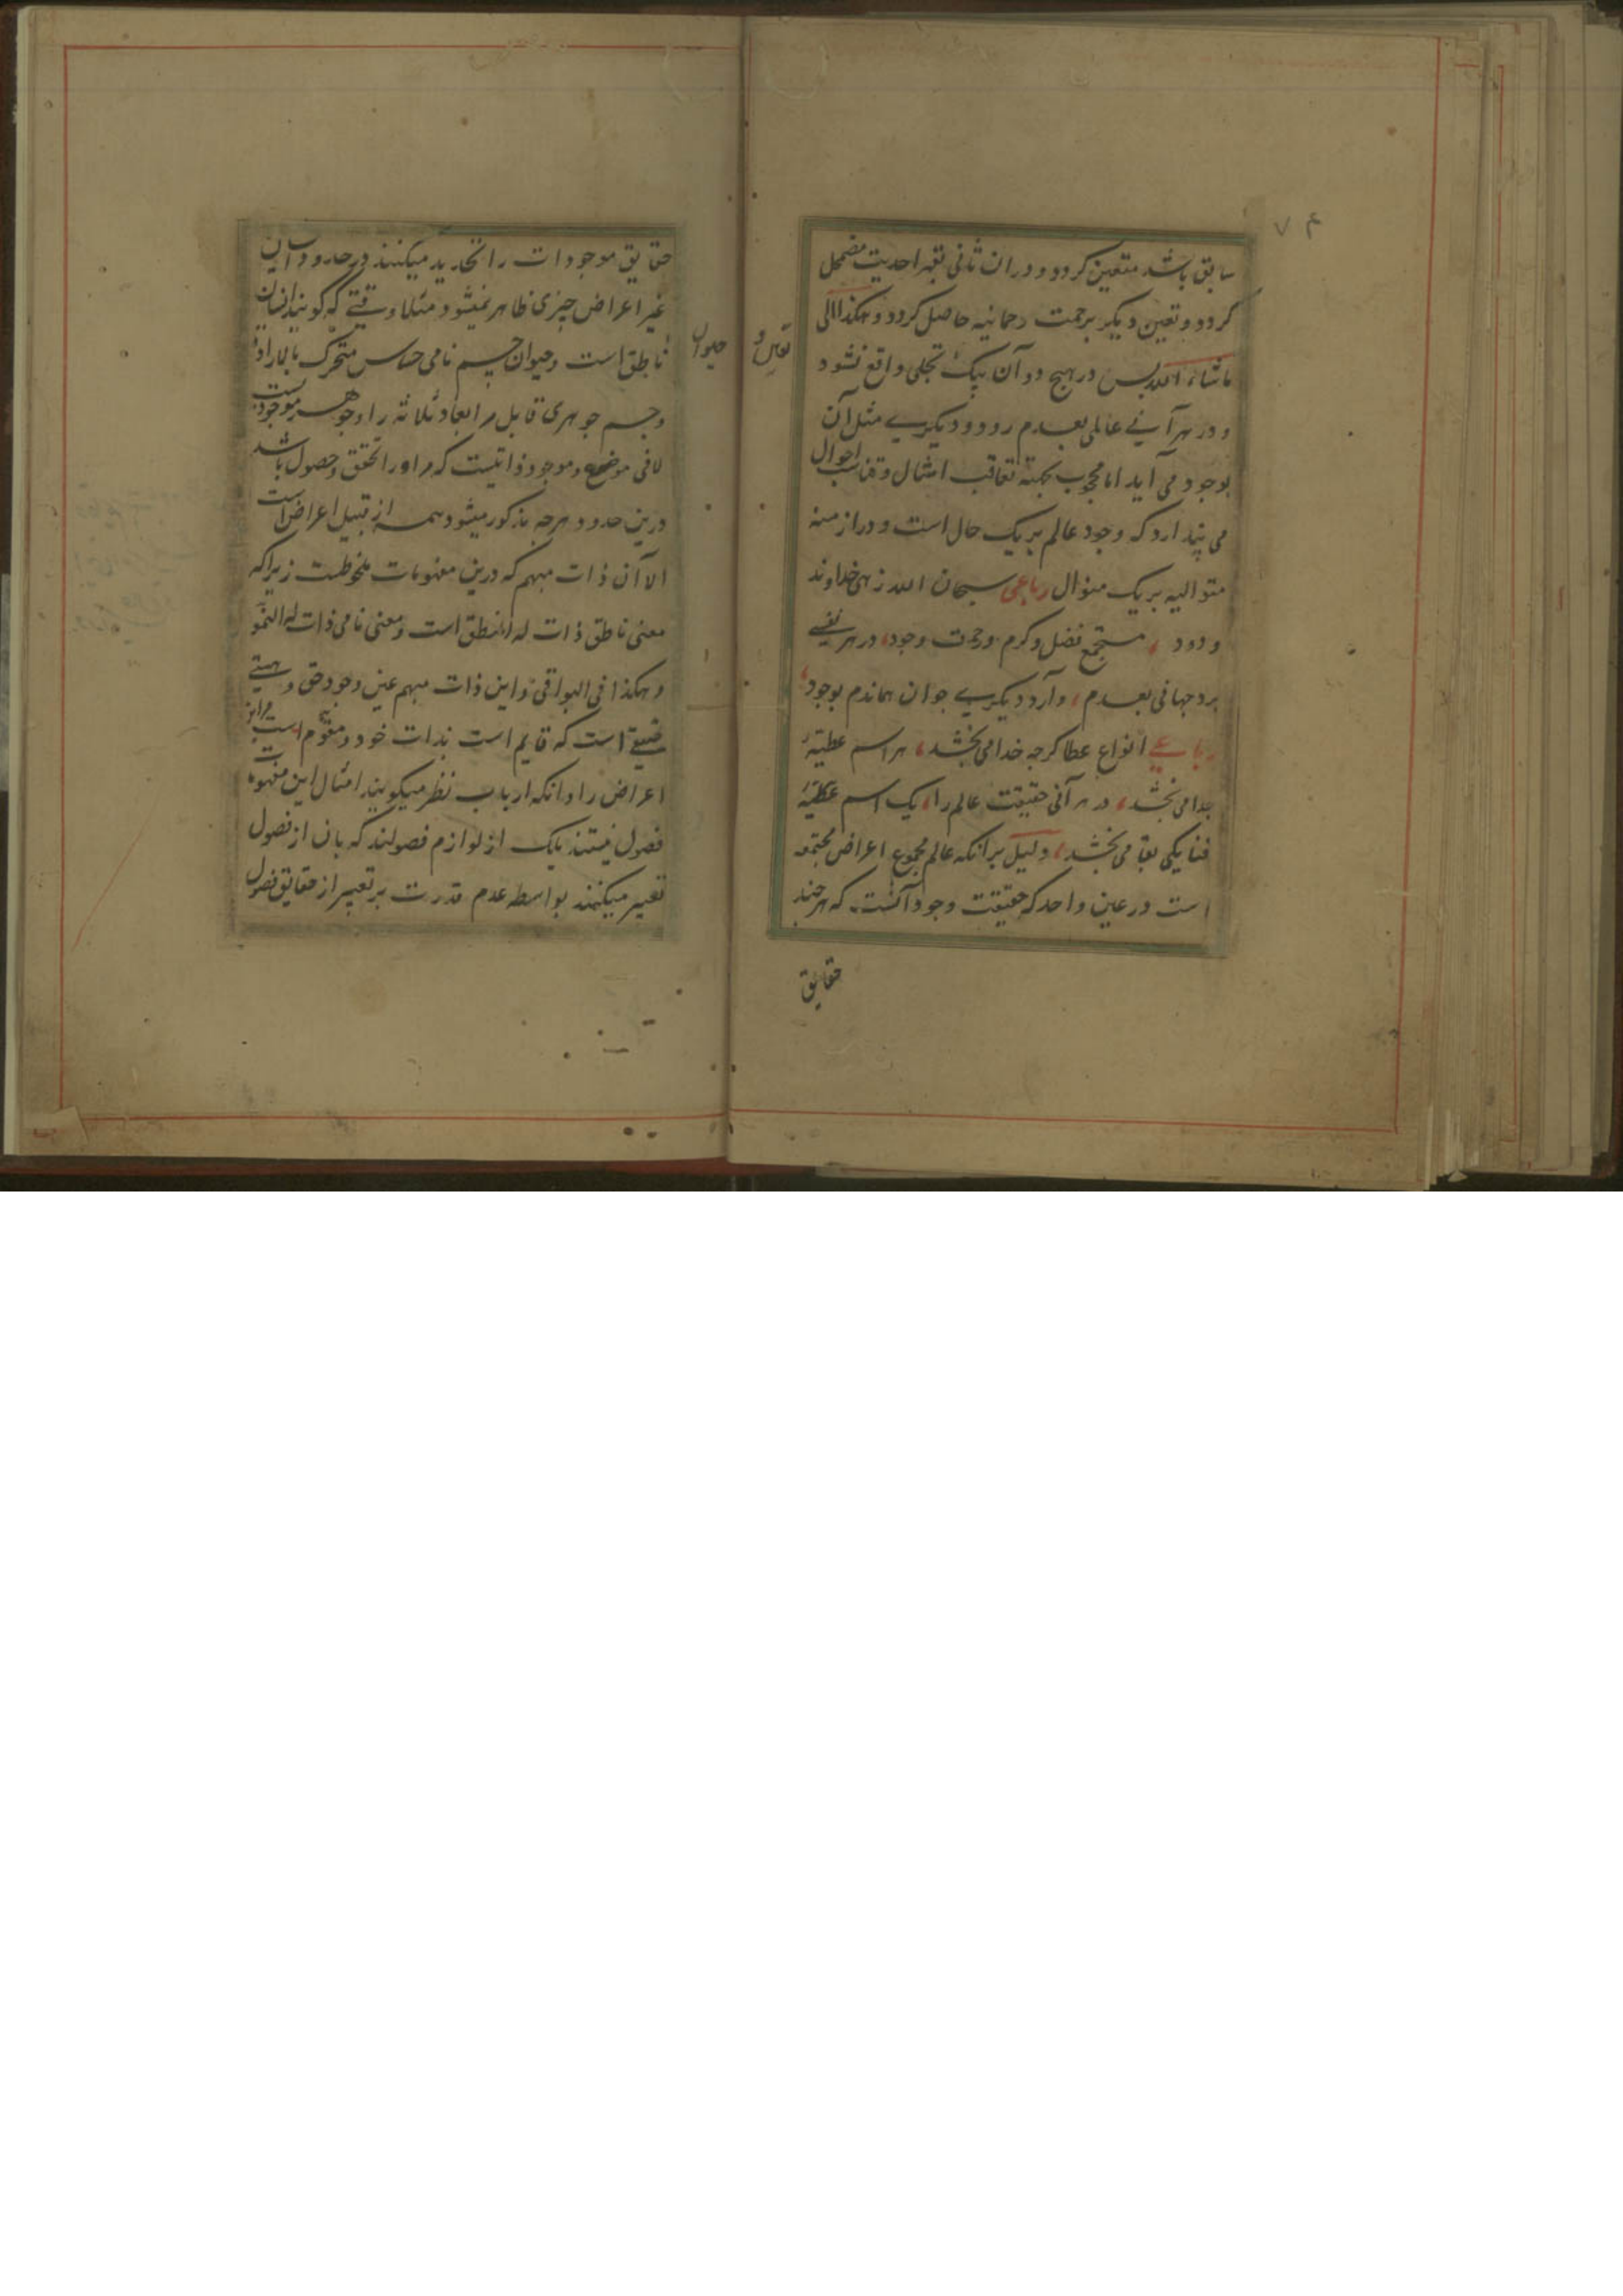 ۷۴
سابق باشد متعین کردد و در ان ثانی بقهر احدیت مضمحل
کردد و تعین دیکر برحمت رحمانیه حاصل کردد و هکذا الی
ماشاء الله پس در هیچ دو آن بیک تجلی واقع نشود
و در هر آنی عالمی بعدم رود و دیکری مثل آن
بوجود می آید اما محجوب بجهة تعاقب امثال و تناسب احوال
می پندارد که وجود عالم بر یک حال است و در ازمنه
متوالیه بر یک منوال رباعی سبحان الله زهی خداوند
ودود ، مستجمع فضل و کرم و رحمت وجود ، در هر نفسی
برد جهانی بعدم ، وآرد دیکری جو ان هماندم بوجود ،
رباعی انواع عطا کرجه خدا می بخشد ، هر اسم عطیهٔ
جدا می بخشد ، در هر آنی حقیقت عالم را ، یک اسم
فنا یکی بقا می بخشد ، دلیل برانکه عالم مجموع اعراض مجتمعه
است در عین واحد که حقیقت وجود آنست که هر جند
حقایق
حقایق موجودات را تحدید میکنند در حدود ایشان
غیر اعراض جیزی ظاهر نمیشود مثلا وقتی که کویند انسان
حیوان
ناطق است و حیوان جسم نامی حساس متحرک بالاراده
و جسم جوهری قابل مر ابعاد ثلاثه را و جوهر موجودیست
لا فی موضوع و موجود ذاتیست که مر اورا تحقق و حصول باشد
درین حدود هرجه مذکور میشود همه از قبیل اعراض است
الا آن ذات مبهم که درین مفهومات ملحوظست زیراکه
معنی ناطق ذات له النطق است و معنی نامی ذات له النمو
و هکذا فی البواقی و این ذات مبهم عین وجود حق و هستی
حقیقی است که قایم است بذات خود و مقوم است مر این
اعراض را و انکه ارباب نظر میکویند امثال این مفهومات
فصول نیستند بلک از لوازم فصولند که بان از فصول
تعبیر میکنند بواسطه عدم قدرت بر تعبیر از حقایق فصول